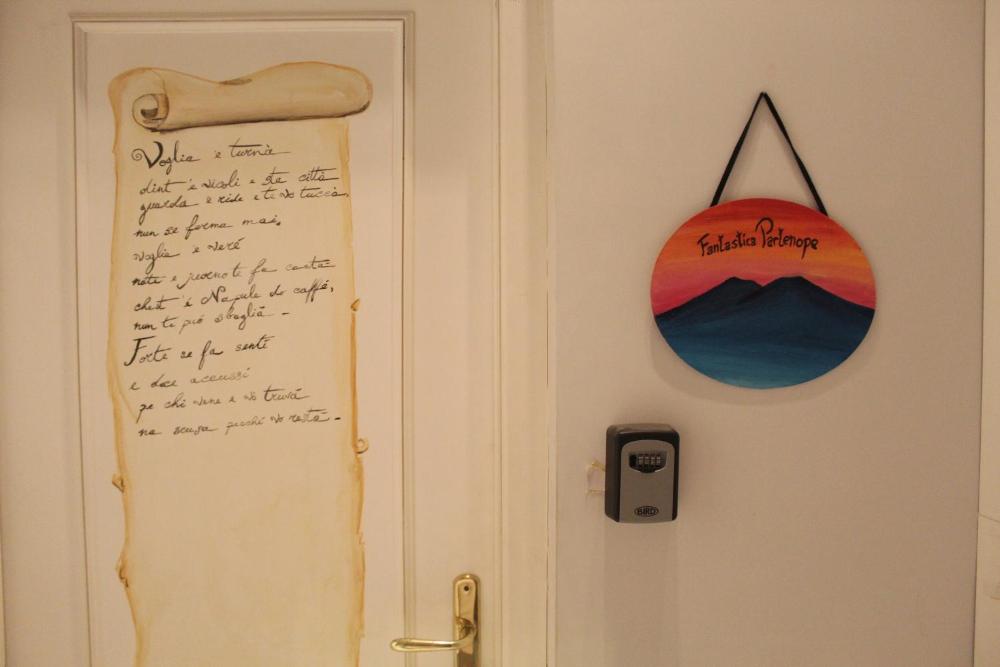 Voglia 'e turnà
dint 'e vicoli e sta città
guarda e ride e te vo tuccà,
nun se ferma mai,
voglia 'e veré
notte e juorno te fa cantà
chest 'è Napule do caffè,
nun te può sbaglià -
Forte se fa sentì
e doce accussì
pe chi vene e vo truvà
na scusa pecché vo restà -
Fantastica Partenope
BIRD